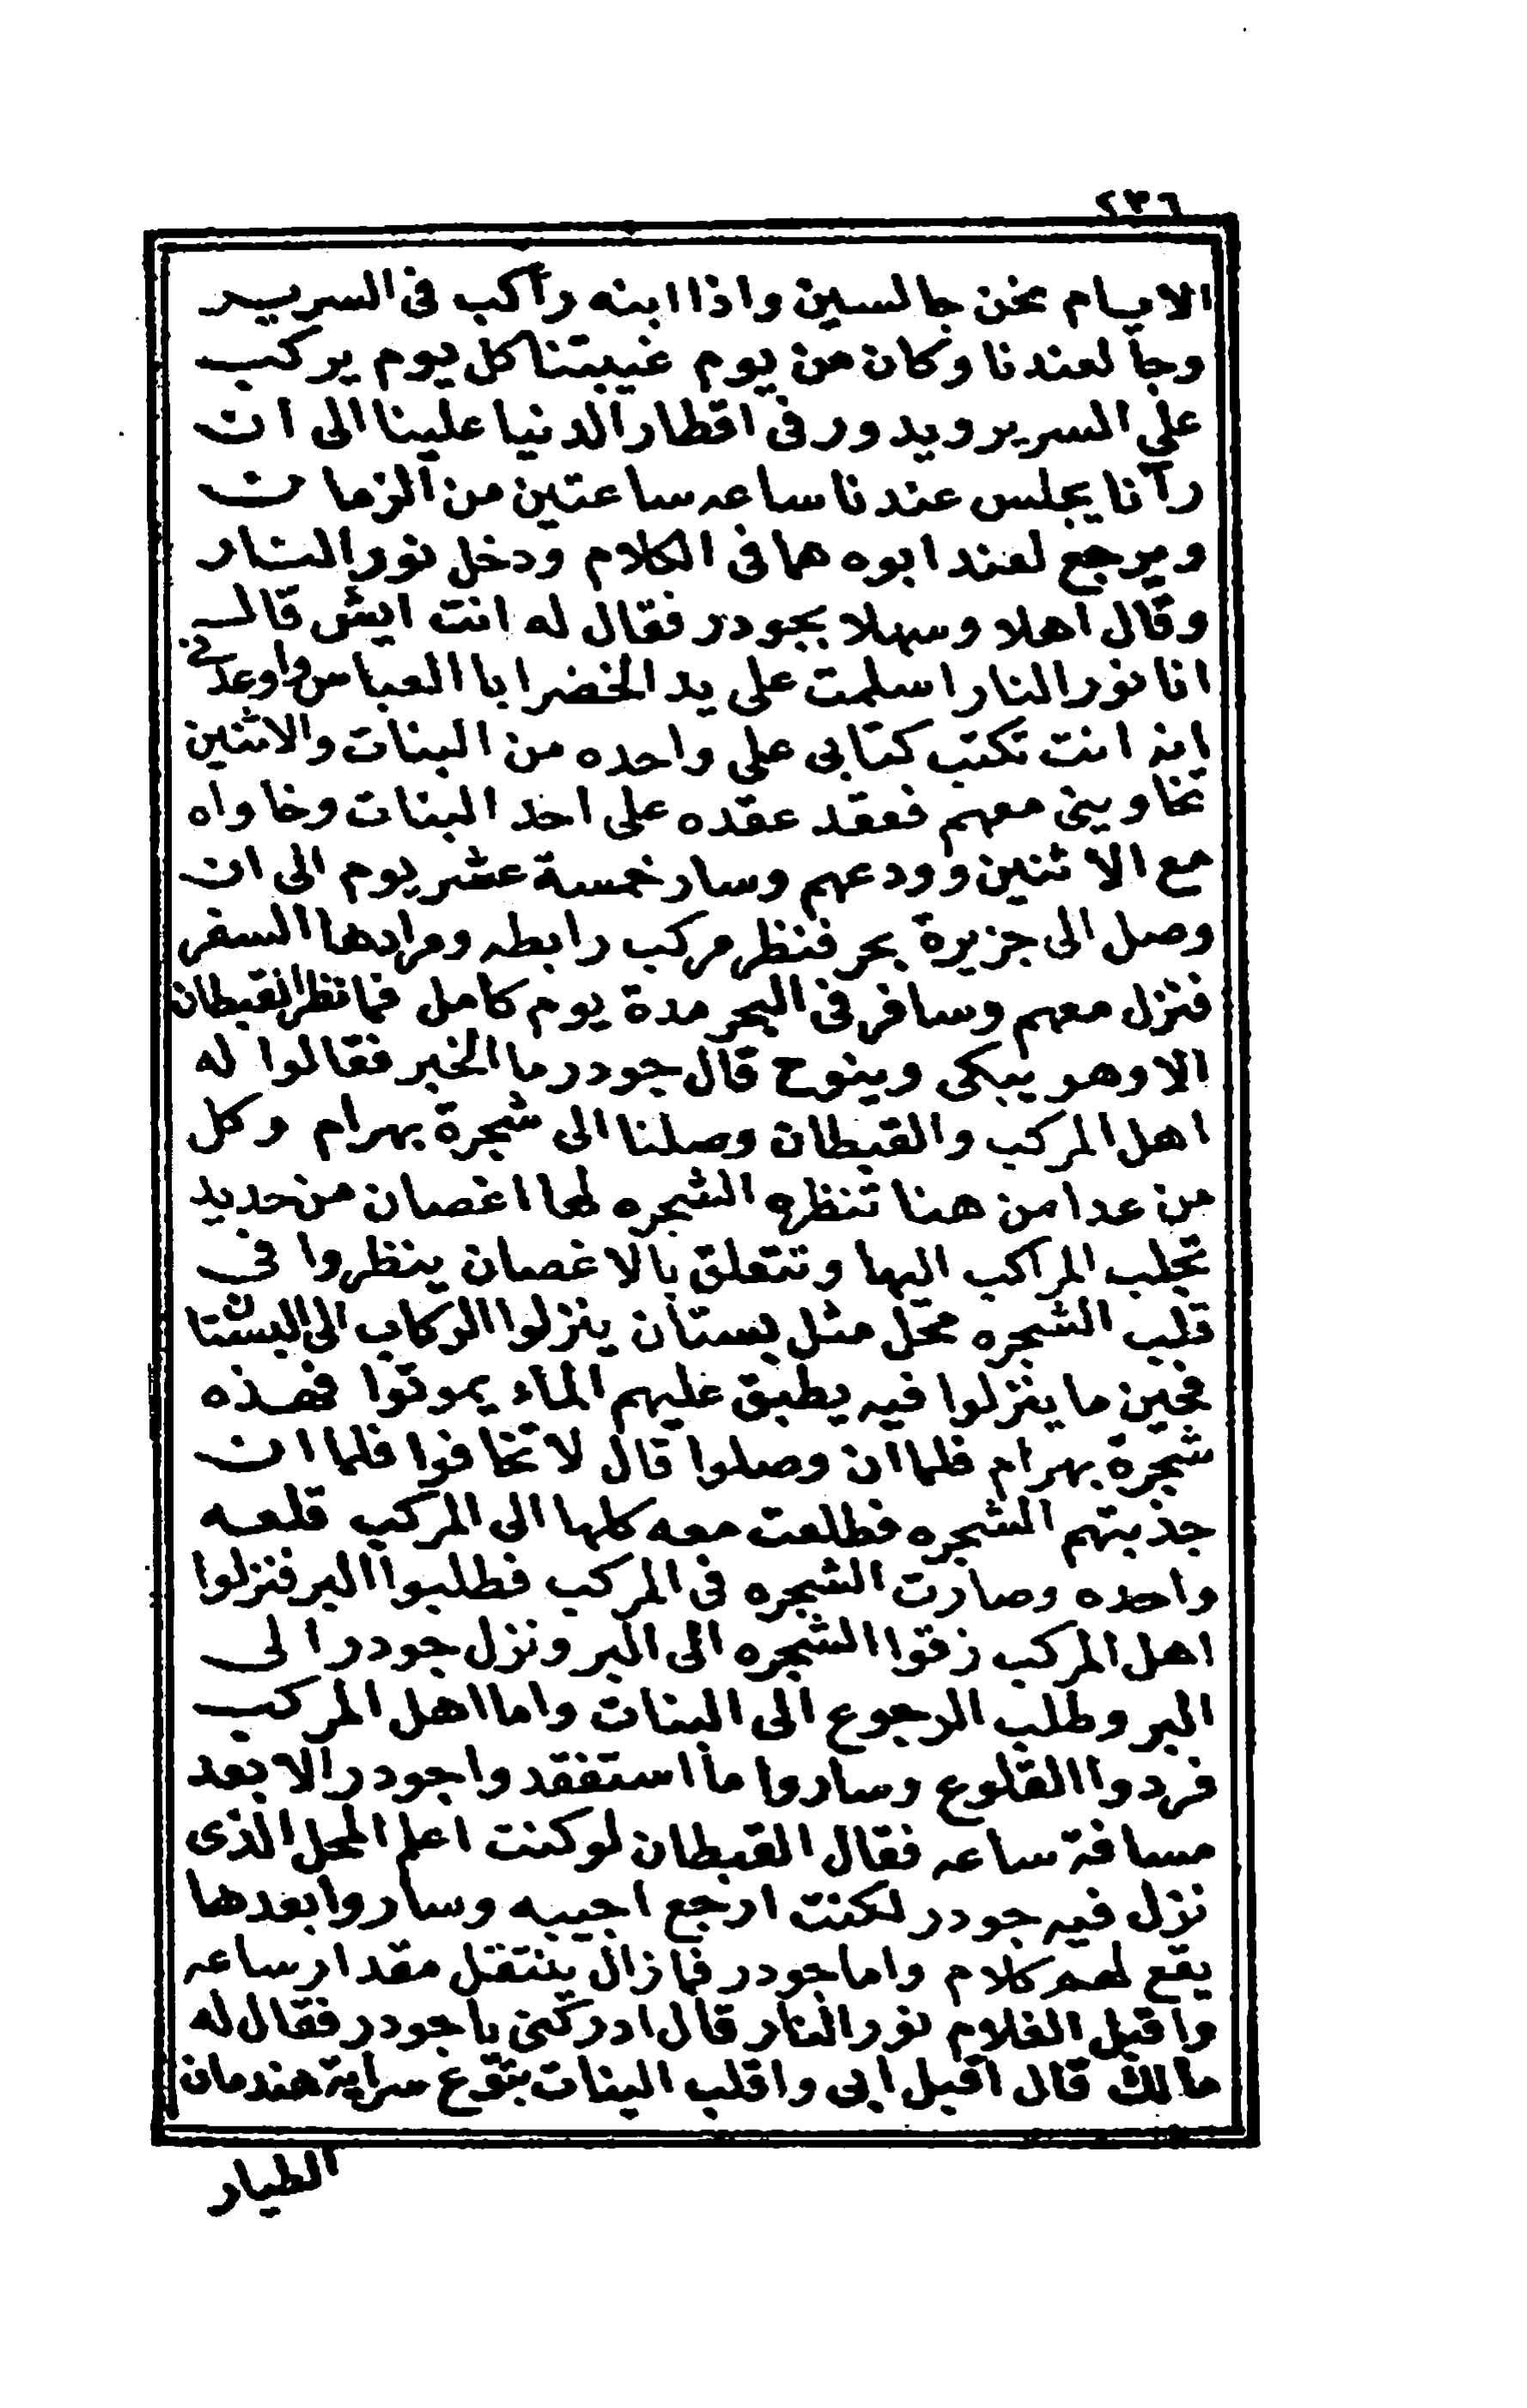 ٢٣٦
الايام نحن جالسين واذا ابنه رآكب فى السرير
وجا لعندنا وكان من يوم غيبتنا كل يوم يركب
على السرير ويدور فى اقطار الدنيا علينا الى ان
رآنا يجلس عندنا ساعه ساعتين من الزمان
ويرجع لعند ابوه هما فى الكلام ودخل نور النار
وقال اهلا وسهلا بجودر فقال له انت ايش قال
انا نور النار اسلمت على يد الخضر ابا العباس واوعدنى
انه انت تكتب كتابى على واحده من البنات والاثنين
تخاوينى معهم فعقد عقده على احد البنات وخاواه
مع الاثنين وودعهم وسار خمسة عشر يوم الى ان
وصل الى جزيرة بحر فنظر مركب رابطه ومرادها السفر
فنزل معهم وسافر فى البحر مدة يوم كامل فما نظر القبطان
الا وهو يبكى وينوح قال جودر ما الخبر فقالوا له
اهل المركب والقبطان وصلنا الى شجرة بهرام وكل
من عدا من هنا تنظره الشجره لها اغصان من حديد
تجلب المراكب اليها وتتعلق بالاغصان ينظروا فى
قلب الشجره محل مثل بستان ينزلوا الركاب الى البستان
فحين ما ينزلوا فيه يطبق عليهم الماء يموتوا فهذه
شجرة بهرام فلما ان وصلوا قال لا تخافوا فلما ان
جذبتهم الشجره فطلعت معه كلها الى المركب قلعه
واحده وصارت الشجره فى المركب فطلبوا البر فنزلوا
اهل المركب زقوا الشجره الى البر ونزل جودر الى
البر وطلب الرجوع الى البنات واما اهل المركب
فردوا القلوع وساروا ما استفقدوا جودر الا بعد
مسافة ساعه فقال القبطان لو كنت اعلم المحل الذى
نزل فيه جودر لكنت ارجع اجيبه وساروا بعدها
يقع لهم كلام واما جودر فما زال ينتقل مقدار ساعه
واقبل الغلام نور النار قال ادركنى يا جودر فقال له
مالك قال اقبل ابى واقلب البنات بتوع سراية هندمان
الطيار